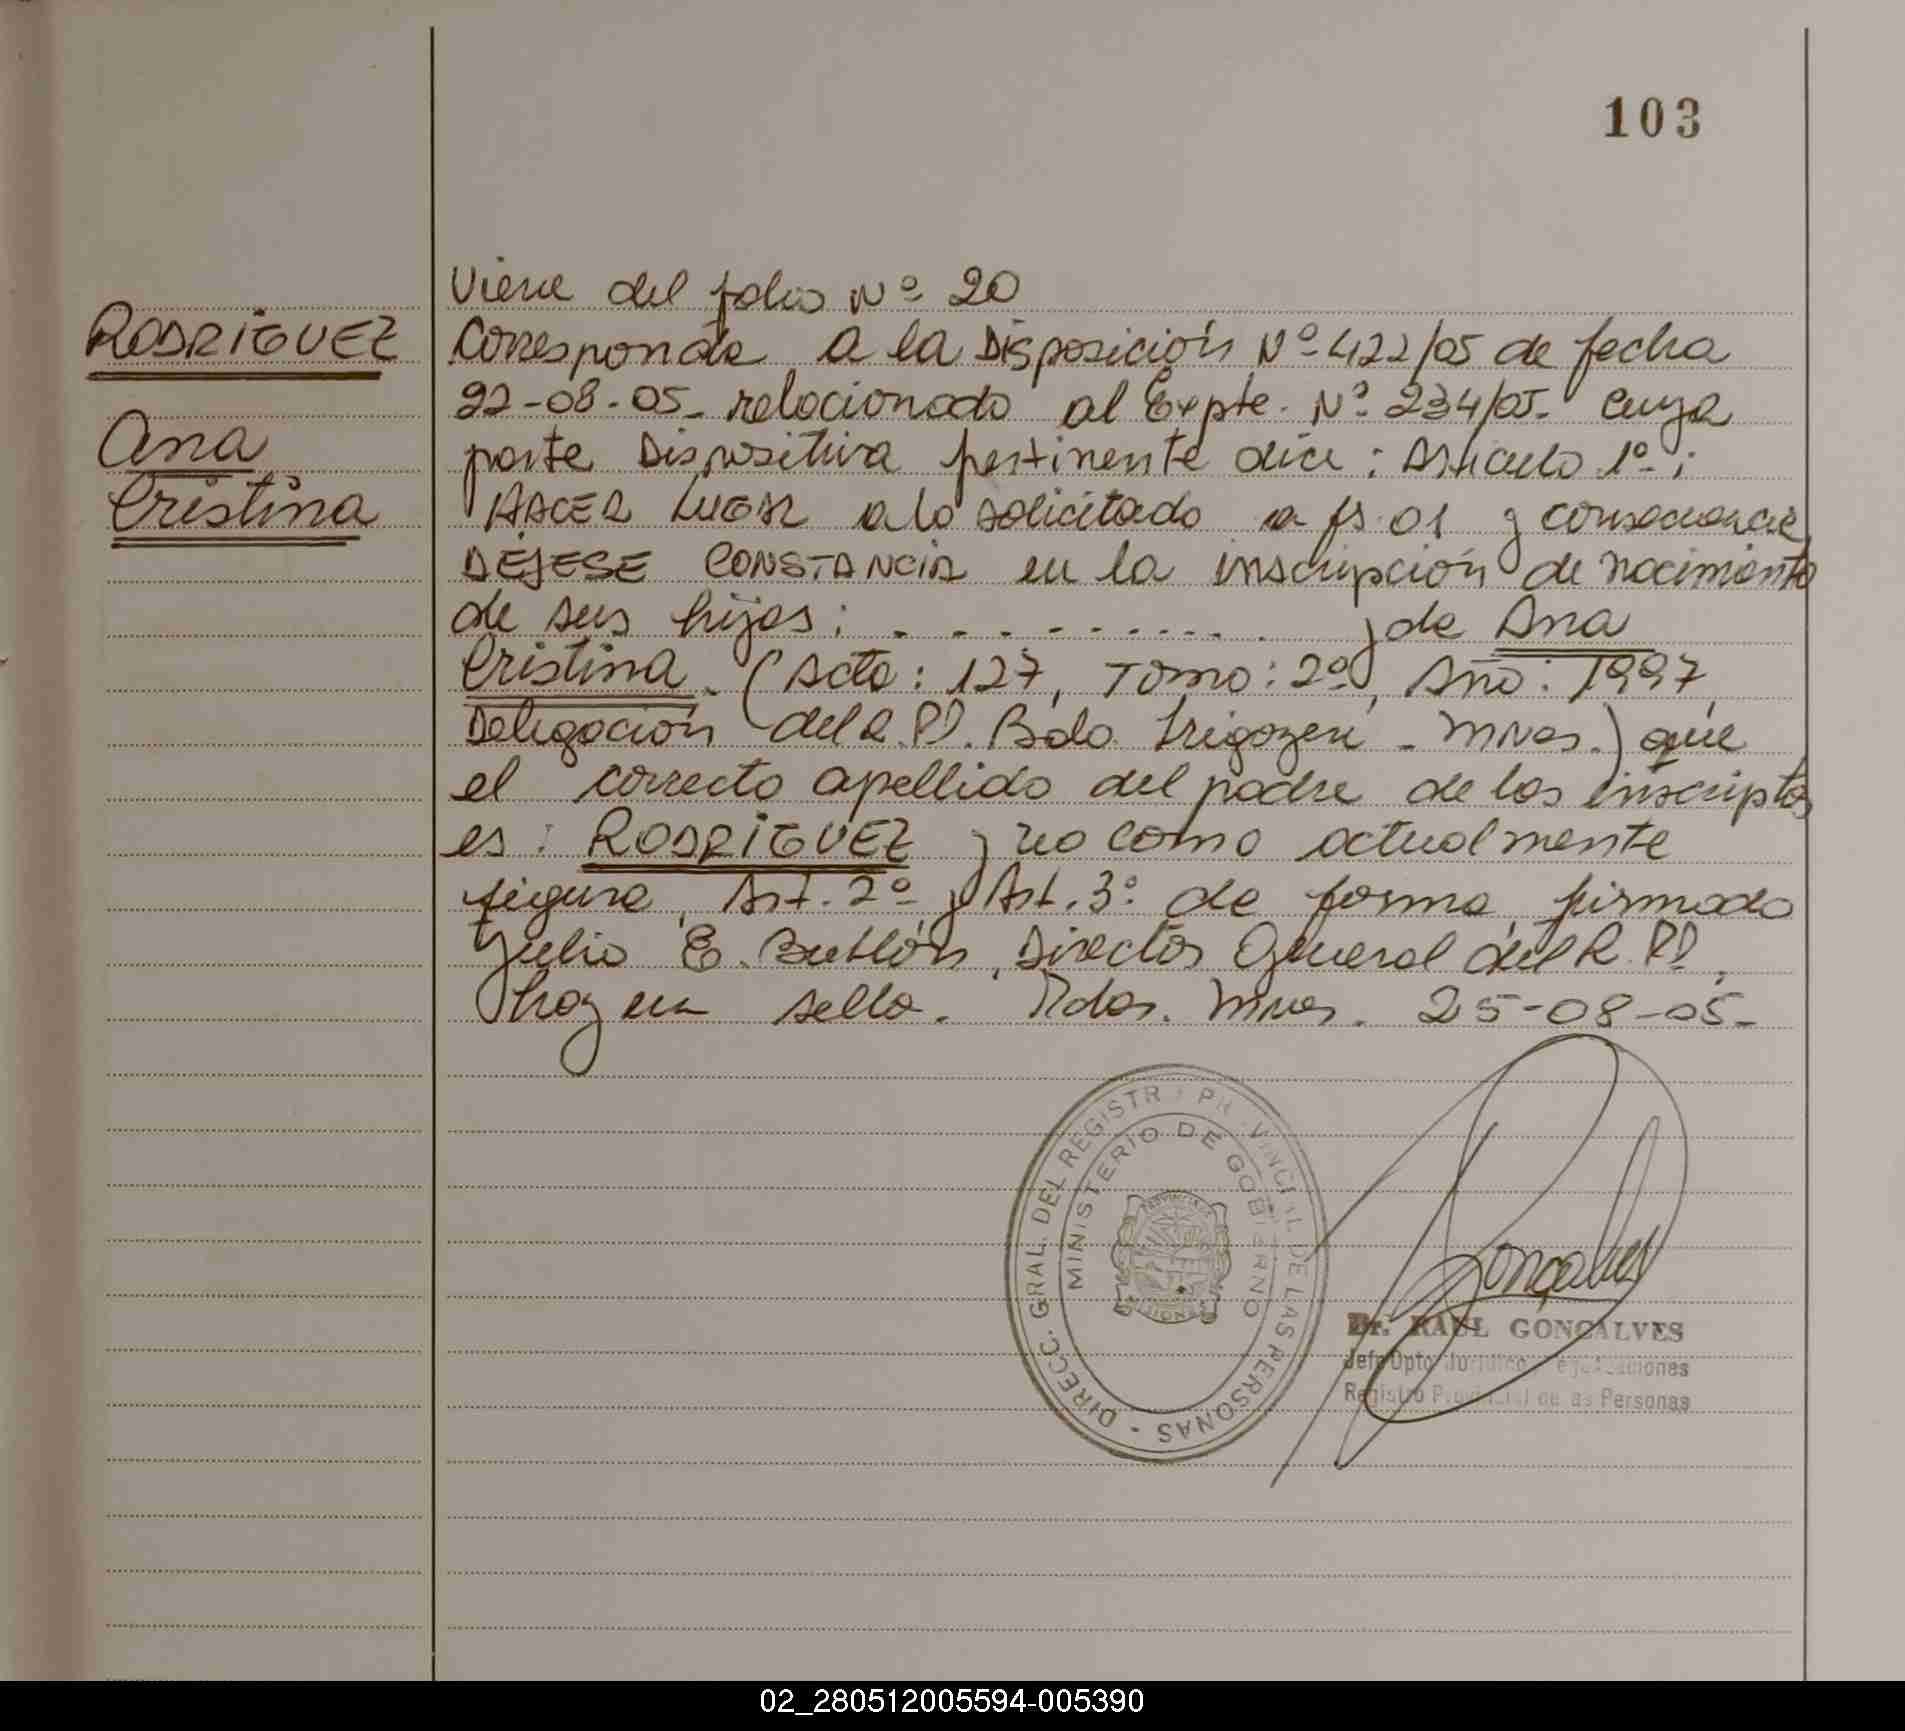 103
RODRIGUEZ
Ana
Cristina
Viene del folio Nº 20
Corresponde a la Disposición Nº 422/05 de fecha
22-08-05- relacionado al Expte. Nº 234/05- cuya
parte Dispositiva pertinente dice: Articulo 1º:
HACER LUGAR a lo solicitado a fs. 01 y
DÉJESE CONSTANCIA en la inscripción de nacimiento
de sus hijos: . - - - - - - - - - . y de Ana
Cristina. (Acta: 127, Tomo: 2º, Año: 1997,
Delegación del R.P.P. Bdo. Irigoyen - Mnes.) que
el correcto apellido del padre de los inscriptos
es: RODRIGUEZ y no como actualmente
figura, Art. 2º y Art. 3º de forma, firmado
Julio E. Director General del R.P.P.,
hay un sello. Pdas. Mnes. 25-08-05-
DIRECC. GRAL. DEL REGISTRO PROVINCIAL DE LAS PERSONAS -
MINISTERIO DE GOBIERNO
PROVINCIA DE
MISIONES
Gonçalves
Dr. RAUL GONCALVES
Jefe Dpto. Jurídico
Registro Provincial de las Personas
02_280512005594-005390